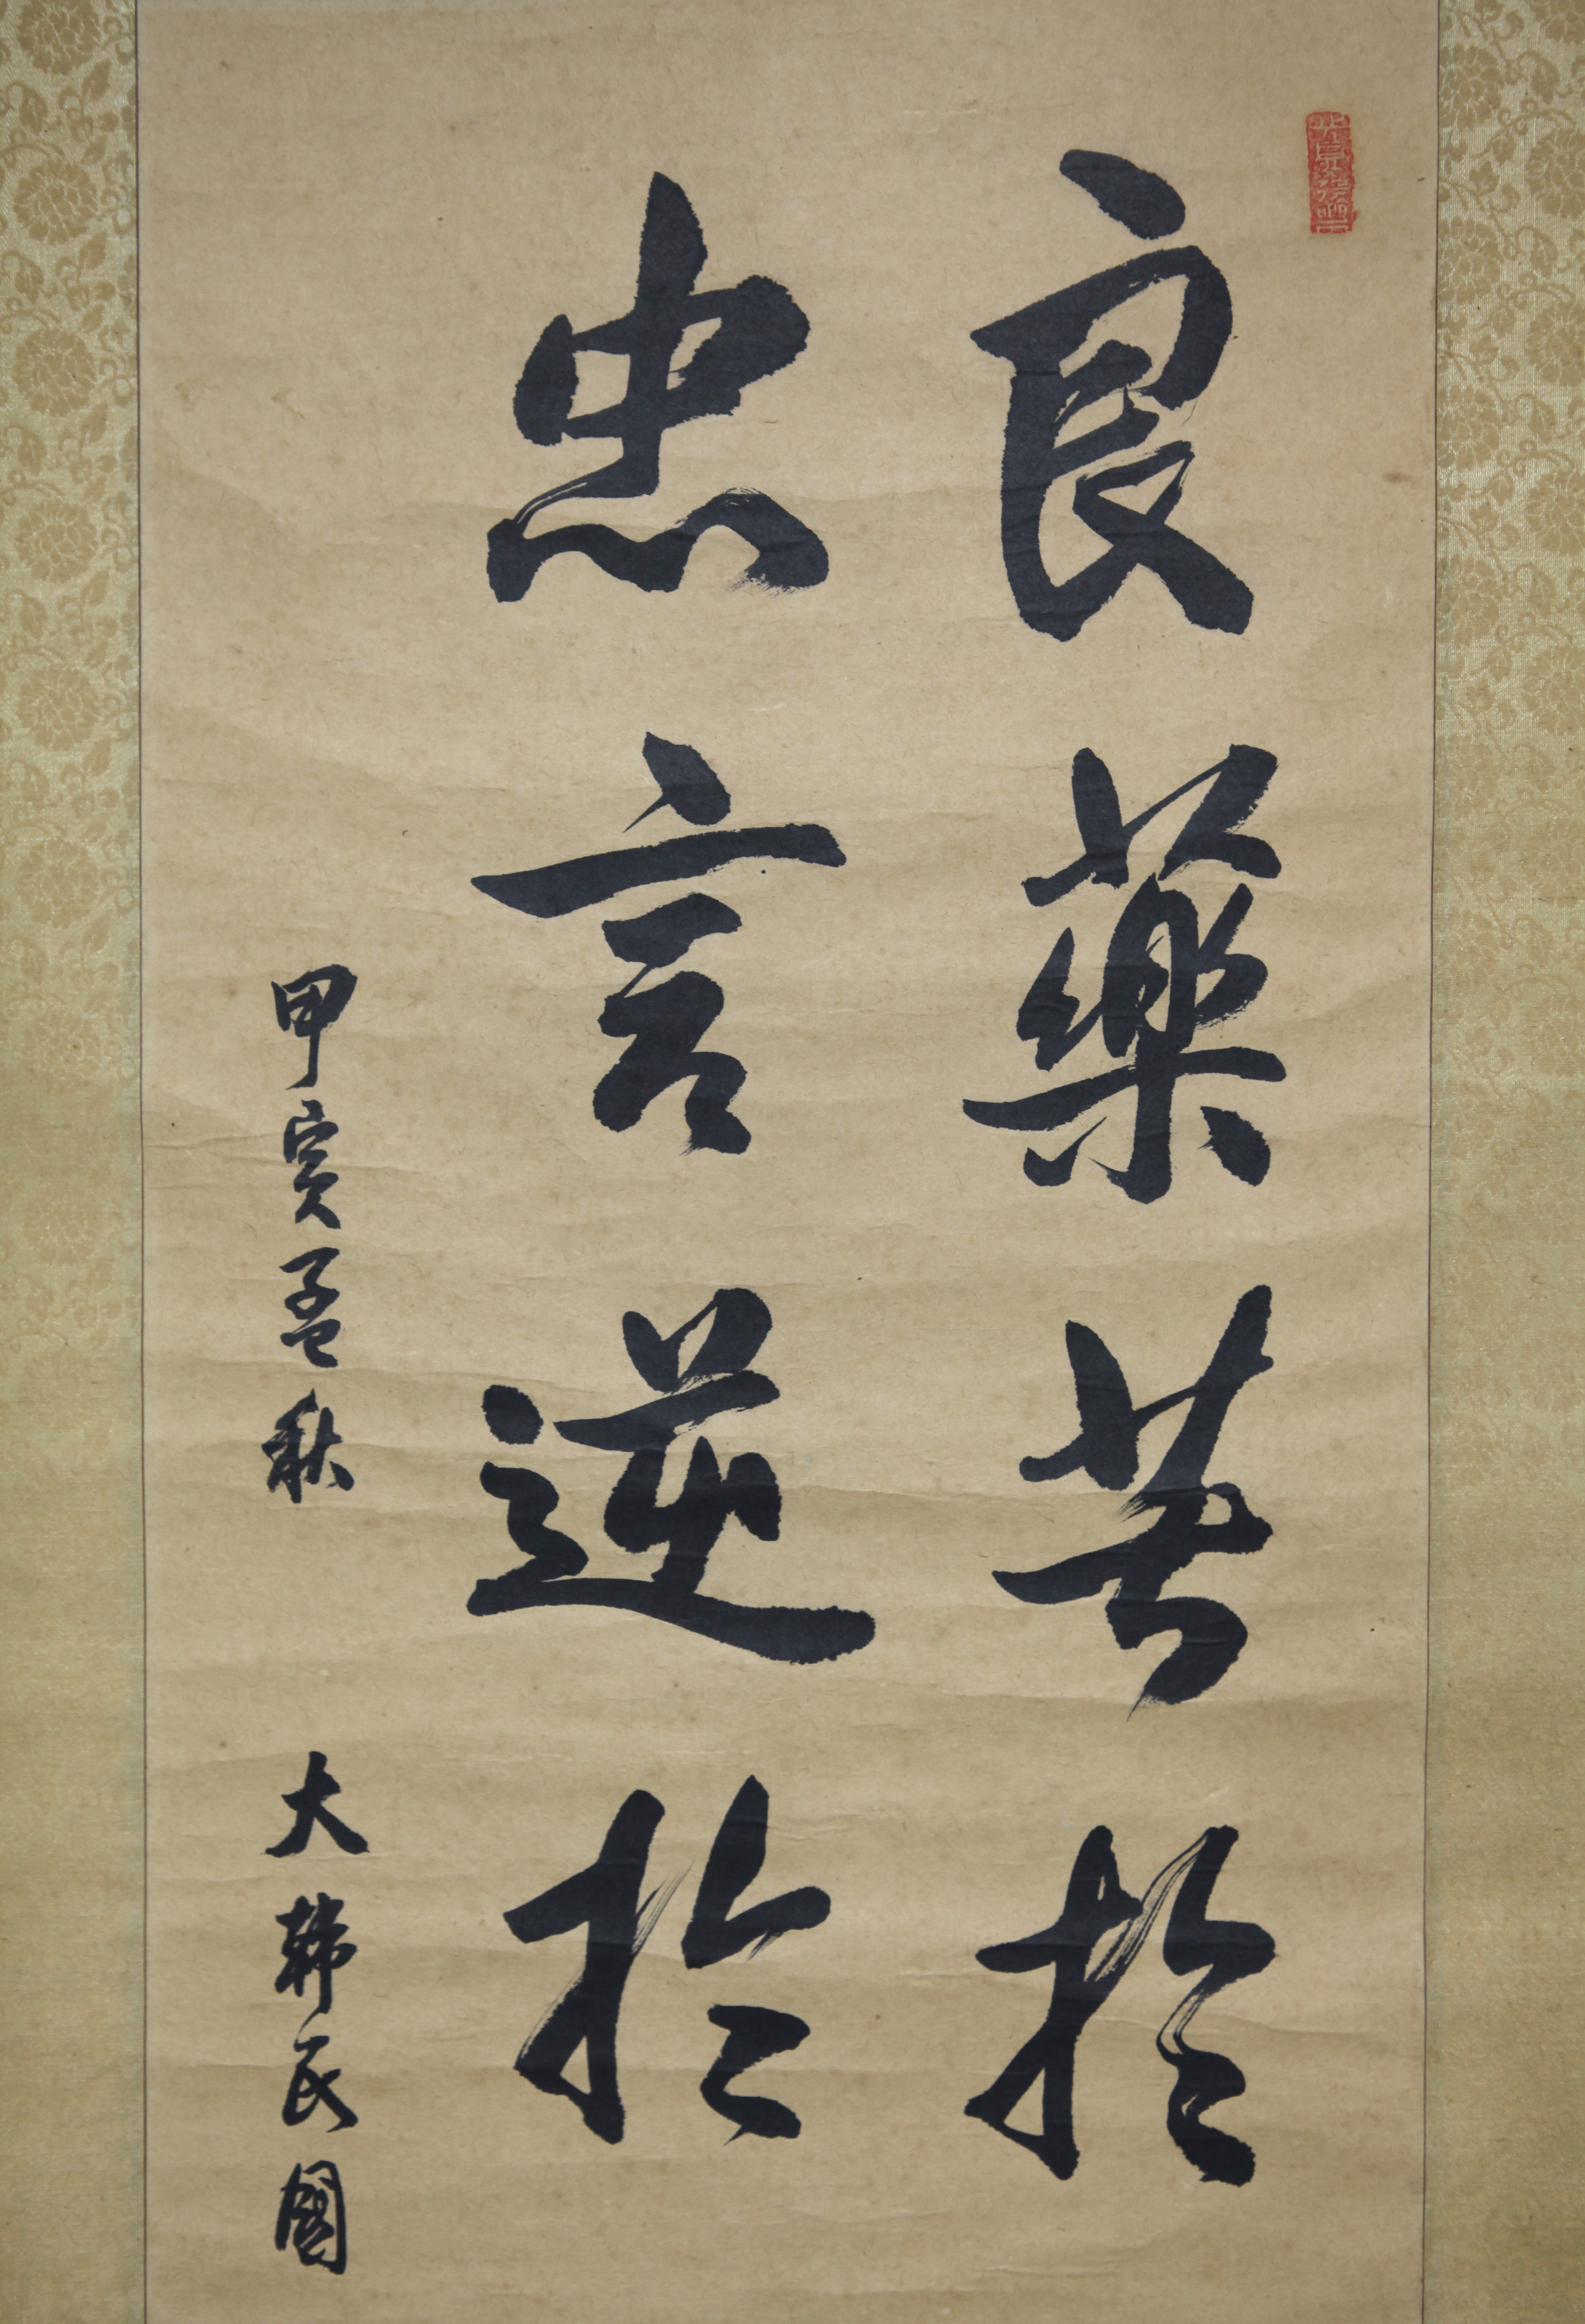 良藥苦於
忠言逆於
甲寅孟秋 大韓民国